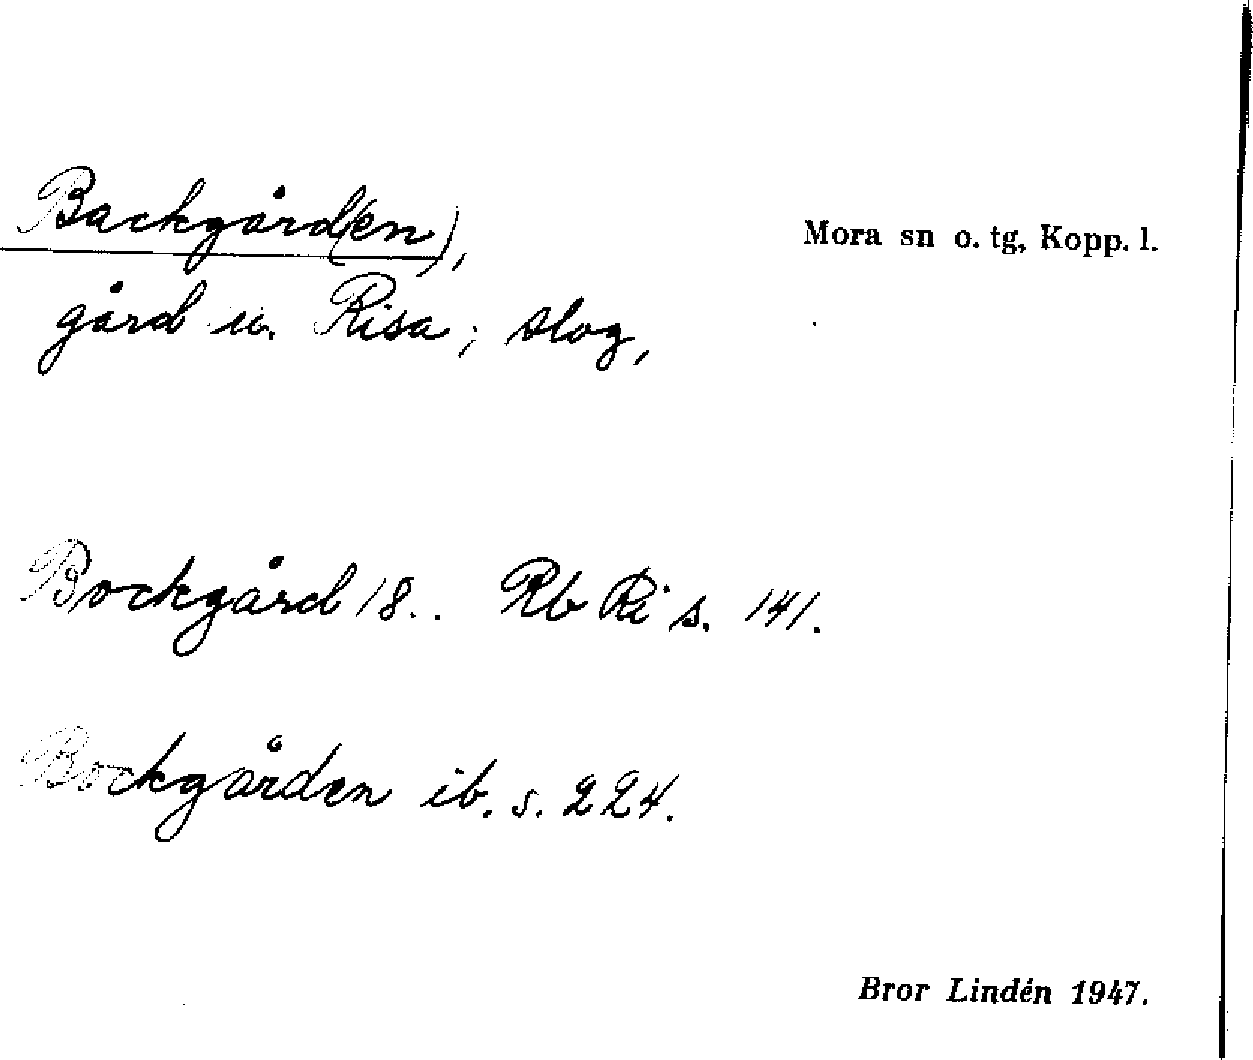 Backgård(en),
Mora sn o. tg, Kopp. l.
gård u. Risa; slog,
Bockgård 18.. Rb Ri s. 141.
Bockgården ib. s. 224.
Bror Lindén 1947.